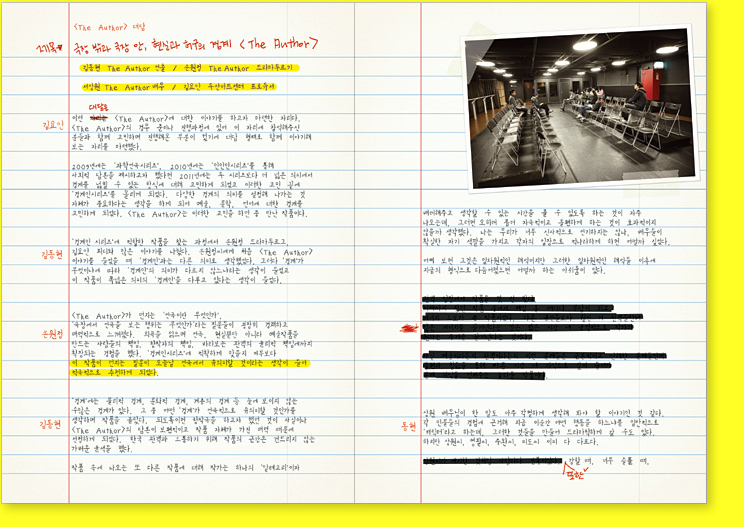 <The Author> 대담
제목* 극장 밖과 극장 안, 현실과 허구의 경계 <The Author>
김동현 The Author 연출 / 손원정 The Author 드라마투르기
서상원 The Author 배우 / 김요안 두산아트센터 프로듀서
대담은
김요안
이번 <The Author>에 대한 이야기를 하고자 마련한 자리다.
<The Author>의 경우
분들과 함께 고민하며 진행해온 부분이 있기에 대담 형태로 함께 이야기해
보는 자리를 마련했다.
2009년에는 '과학연극시리즈', 2010년에는 '인인인시리즈'를 통해
사회적 담론을 제시하고자 했다면 2011년에는 두 시리즈보다 더 넓은 의미에서
경계를 넘을 수 있는 인식에 대해 고민하게 되었고 이러한 고민 끝에
'경계인시리즈'를 올리게 되었다. 다양한 경계의 의미를 설정해 나가는 것
자체가 중요하다는 생각을 하게 되어 예술, 문학, 언어에 대한 경계를
고민하게 되었다. <The Author>는 이러한 고민을 하던 중 만난 작품이다.
김동현
'경계인 시리즈'에 적합한 작품을 찾는 과정에서 손원정 드라마투르그,
김요안 피디와 많은 이야기를 나눴다. 손원정씨에게 처음 <The Author>
이야기를 들었을 때 '경계인'과는 다른 의미로 생각했었다. 그러다 '경계'가
무엇이냐에 따라 '경계인'의 의미가 다르지 않느냐라는 생각이 들었고
이 작품이 폭넓은 의미의 '경계인'을 다루고 있다는 생각이 들었다.
손원정
<The Author>가 던지는 '연극이란 무엇인가',
'극장에서 연극을 보는 행위는 무엇인가'라는 질문들이 굉장히 경쾌하고
매력적으로 느껴졌다.
만드는 사람들의 책임, 창작자의 책임, 바라보는 관객의 윤리적 책임에까지
확장되는 경험을 했다. '경계인시리즈'에 적확하게 맞을지 여부보다
이 작품이 던지는 질문이 오늘날 연극에서 유의미할 것이라는 생각이 들어
적극적으로 추천하게 되었다.
김동현
'경계'에는 물리적 경계, 문화적 경계, 계층의 경계 등 눈에 보이지 않는
수많은 경계가 있다. 그 중 어떤 '경계'가 연극적으로 유의미할 것인가를
생각하며 작품을 골랐다. 되도록이면 창작극을 하고자 했던 것이 사실이나
<The Author>의 담론이 보편적이고 작품 자체가 가진 매력 때문에
선정하게 되었다. 한국 관객과 소통하기 위해 작품의 근간은 건드리지 않는
가벼운 윤색을 했다.
작품 속에 나오는 또 다른 작품에 대해 작가는 하나의 '알레고리'이자
배려해주고 생각할 수 있는 시간을 줄 수 있도록 하는 것이 자주
나오는데, 그러면 오히려 좀더 자극적이고 불편하게 하는 것이 효과적이지
않을까 생각했다. 나는 우리가 너무 신사적으로 연기하지는 않나, 배우들이
확실한 자기 생각을 가지고 각자의 입장으로 적나라하게 하면 어떨까 싶었다.
어찌 보면 그것은 일차원적인 해석이지만 그러한 일차원적인 해석을 미루어
지금의 형식으로 다듬어졌으면 어땠을까 하는 아쉬움이 있다.
동현
상원 배우님이 한 말도 아주 각별하게 생각해 봐야 할 이야기인 것 같다.
각 인물들의 경험에 근거해 지금 이순간 어떤 행동을 하느냐를 일반적으로
'캐릭터'라고 하는데, 그러한 것들을 만들어 드라마틱하게 갈 수도 있다.
하지만 상원이, 영필이, 주완이, 미도이 이미 다 다르다.
강할 때, 너무 슬플 때,
또한